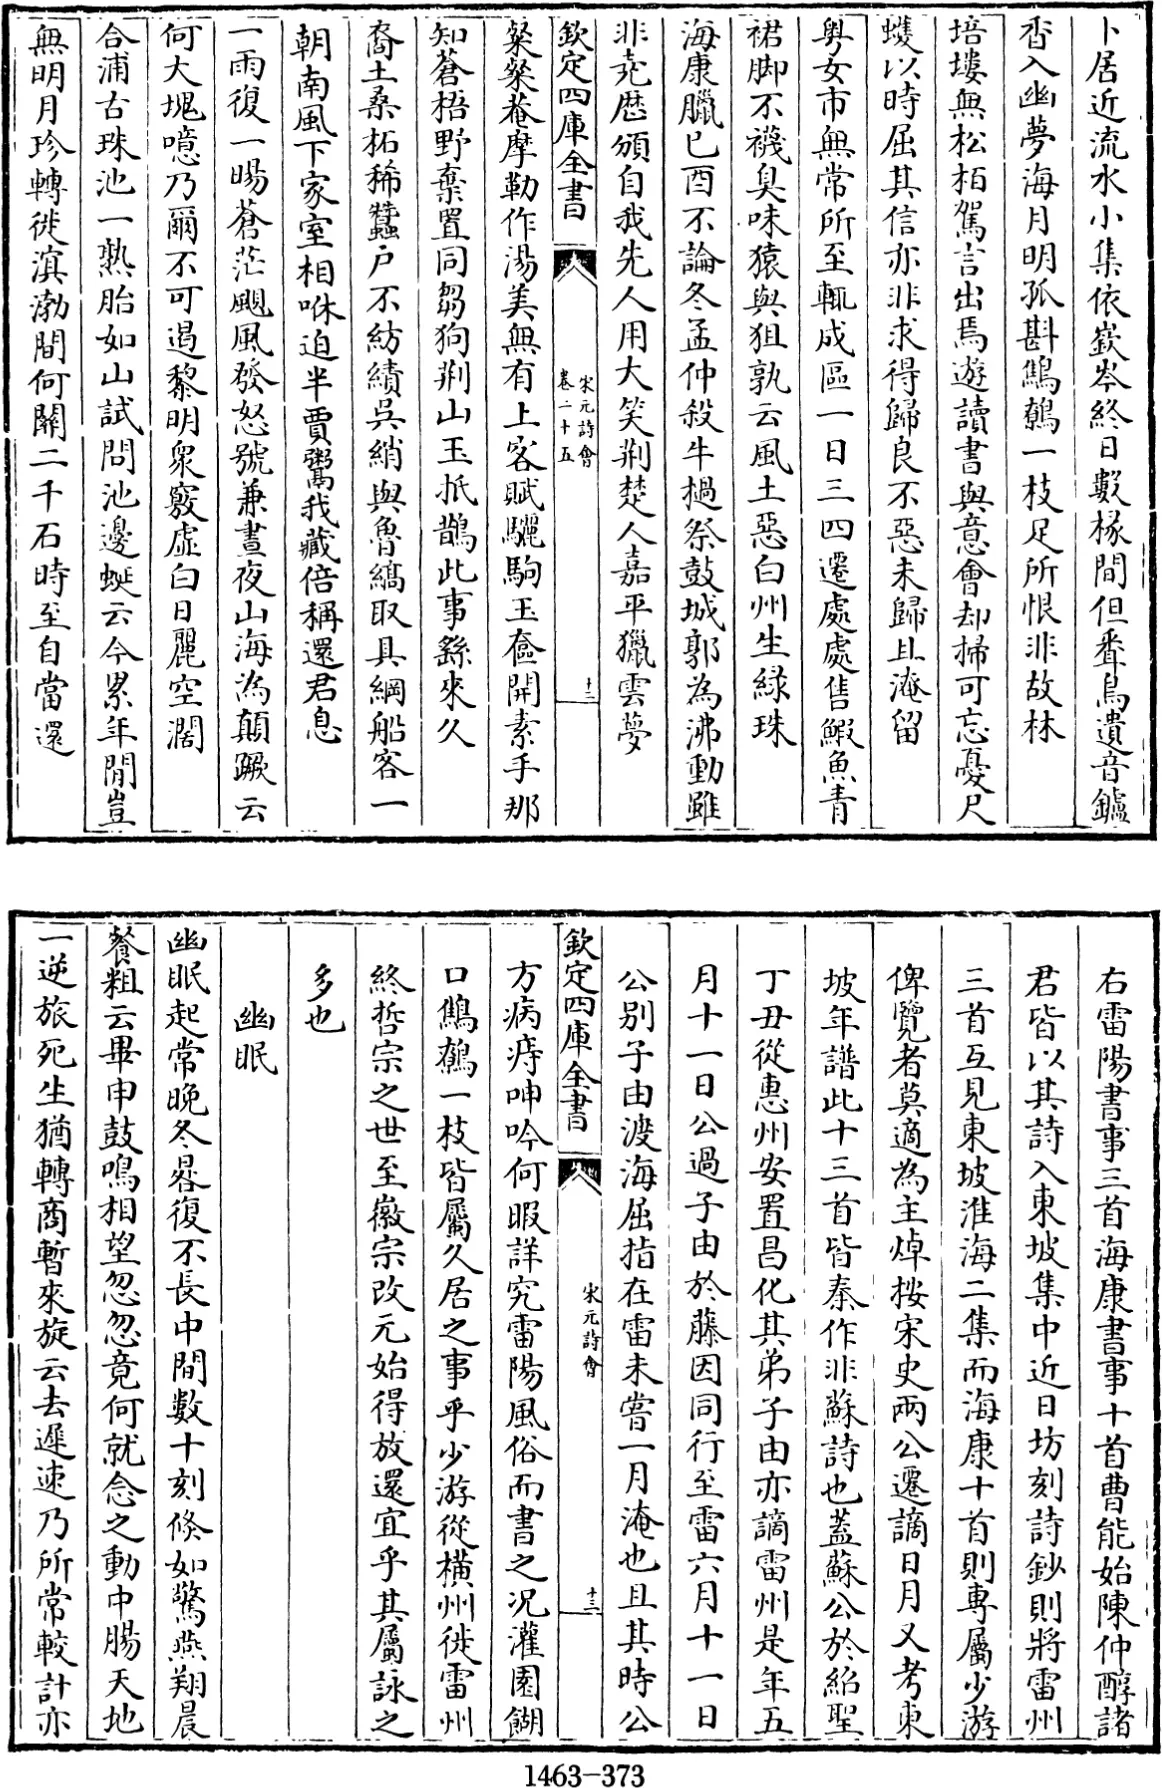 卜居近流水小集依嶔岑終日數椽間但聞鳥遺音鑪
香入幽夢海月明孤斟鷦鷯一枝足所恨非故林
培塿無松栢駕言出焉遊讀書與意會却掃可忘憂尺
蠖以時屈其信亦非求得歸良不惡未歸且淹留
粤女市無常所至輒成區一日三四遷處處售鰕魚青
裙脚不襪臭味猿與狙孰云風土惡白州生緑珠
海康臘已酉不論冬孟仲殺牛撾祭鼓城郭為沸動雖
非堯厯頒自我先人用大笑荆楚人嘉平獵雲夢
欽定四庫全書
宋元詩會
卷二十五
十二
粲粲菴摩勒作湯美無有上客賦驪駒玉奩開素手那
知蒼梧野棄置同芻狗荆山玉抵鵲此事繇來久
裔土桑柘稀蠶户不紡績吳綃與魯縞取具綱船客一
朝南風下家室相咻迫半賈鬻我藏倍稱還君息
一雨復一暘蒼茫颶風發怒號兼晝夜山海為顛蹶云
何大塊噫乃爾不可遏黎明衆竅虚白日麗空濶
合浦古珠池一熟胎如山試問池邊蜑云今累年閒豈
無明月珍轉徙溟渤間何關二千石時至自當還
右雷陽書事三首海康書事十首曹能始陳仲醇諸
君皆以其詩入東坡集中近日坊刻詩鈔則將雷州
三首互見東坡淮海二集而海康十首則專屬少游
俾覽者莫適為主焯按宋史兩公遷謫日月又考東
坡年譜此十三首皆秦作非蘇詩也蓋蘇公於紹聖
丁丑從惠州安置昌化其弟子由亦謫雷州是年五
月十一日公過子由於藤因同行至雷六月十一日
公别子由渡海屈指在雷未嘗一月淹也且其時公
欽定四庫全書
宋元詩會
十三
方病痔呻吟何暇詳究雷陽風俗而書之况灌園餬
口鷦鷯一枝皆屬久居之事乎少游從横州徙雷州
終哲宗之世至徽宗改元始得放還宜乎其屬詠之
多也
幽眠
幽眠起常晚冬晷復不長中間數十刻倐如驚燕翔晨
餐粗云畢申鼓鳴相望忽忽竟何就念之動中腸天地
一逆旅死生猶轉商暫來旋云去遲速乃所常較計亦
1463-373